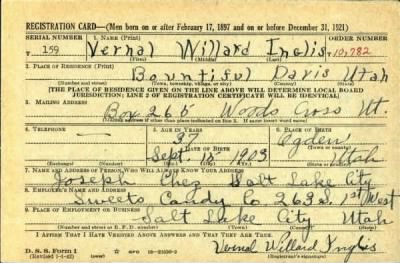 REGISTRATION CARD—(Men born on or after February 17, 1897 and on or before December 31, 1921)
SERIAL NUMBER 1. NAME (Print) ORDER NUMBER
T 159 Vernal Willard Inglis T10,782
(First) (Middle) (Last)
2. PLACE OF RESIDENCE (Print)
Bountiful Davis Utah
(Number and street) (Town, township, village, or city) (County) (State)
[THE PLACE OF RESIDENCE GIVEN ON THE LINE ABOVE WILL DETERMINE LOCAL BOARD
JURISDICTION; LINE 2 OF REGISTRATION CERTIFICATE WILL BE IDENTICAL]
3. MAILING ADDRESS
Box 245 Woods Cross Ut.
[Mailing address if other than place indicated on line 2. If same insert word same]
4. TELEPHONE 5. AGE IN YEARS 6. PLACE OF BIRTH
— Ogden
DATE OF BIRTH (Town or county)
Sept. 1903 Utah
(Exchange) (Number) (Mo.) (Day) (Yr.) (State or country)
7. NAME AND ADDRESS OF PERSON WHO WILL ALWAYS KNOW YOUR ADDRESS
Joseph Chez Salt Lake City
8. EMPLOYER'S NAME AND ADDRESS
Sweets Candy Co. 263 S. 1st West
9. PLACE OF EMPLOYMENT OR BUSINESS
Salt Lake City Utah
(Number and street or R. F. D. number) (Town) (County) (State)
I AFFIRM THAT I HAVE VERIFIED ABOVE ANSWERS AND THAT THEY ARE TRUE.
D. S. S. Form 1
(Revised 1-1-42) (over) Vernal Willard Inglis
(Registrant's signature)